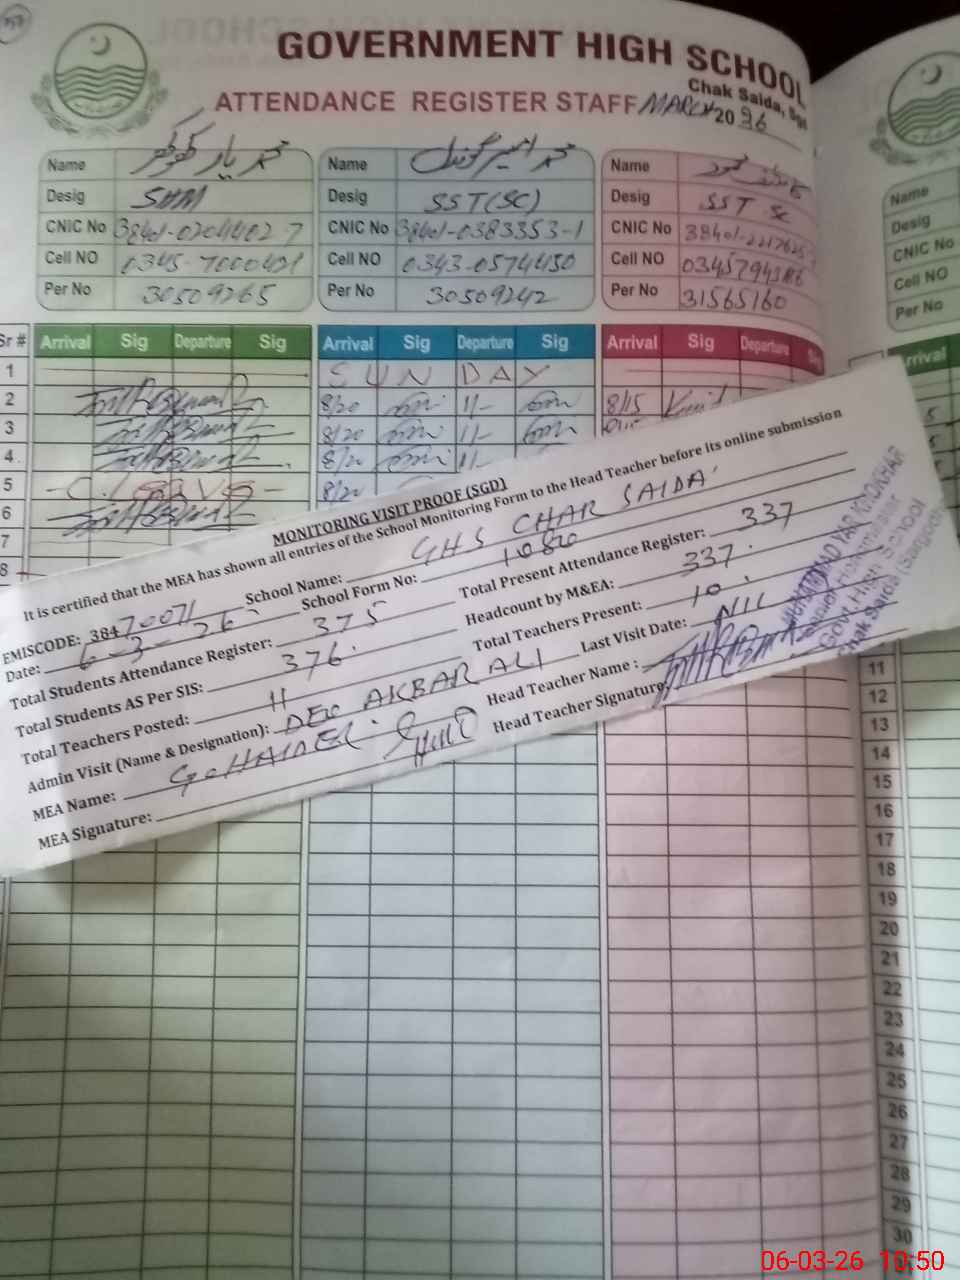 GOVERNMENT HIGH SCHOOL
Chak Saida, Sgd
ATTENDANCE REGISTER STAFF MARCH 2026
Name محمد یار کھوکھر Name محمد امیر گوندل Name محمود
Desig SHM Desig SST(SC) Desig SST SC
CNIC No CNIC No 38401-0383353-1 CNIC No
Cell NO Cell NO 0343-0574450 Cell NO
Per No 30509265 Per No 30509242 Per No 31565160
Name
Desig
CNIC No
Cell NO
Per No
Sr # Arrival Sig Departure Sig Arrival Sig Departure Sig Arrival Sig Departure Sig
1 SUNDAY
2 8/20 11/- 8/15
3 8/20 11/-
4 8/20 11/-
5 - C. Leave - 8/20
6
7
8
MONITORING VISIT PROOF (SGD)
It is certified that the MEA has shown all entries of the School Monitoring Form to the Head Teacher before its online submission
EMISCODE: 38470071 School Name: GHS CHAK SAIDA
Date: 6-3-26 School Form No: 1080
Total Students Attendance Register: 375 Total Present Attendance Register: 337
Total Students AS Per SIS: 376. Headcount by M&EA: 337.
Total Teachers Posted: 11 Total Teachers Present: 10
Admin Visit (Name & Designation): DEO AKBAR ALI Last Visit Date: NIL
MEA Name: G. HAIDER Head Teacher Name :
MEA Signature: Head Teacher Signature:
MUHAMMAD YAR KHOKHAR
Senior Headmaster
Govt. High School
Chak Saida (Sargodha)
11
12
13
14
15
16
17
18
19
20
21
22
23
24
25
26
27
28
29
30
06-03-26 10:50